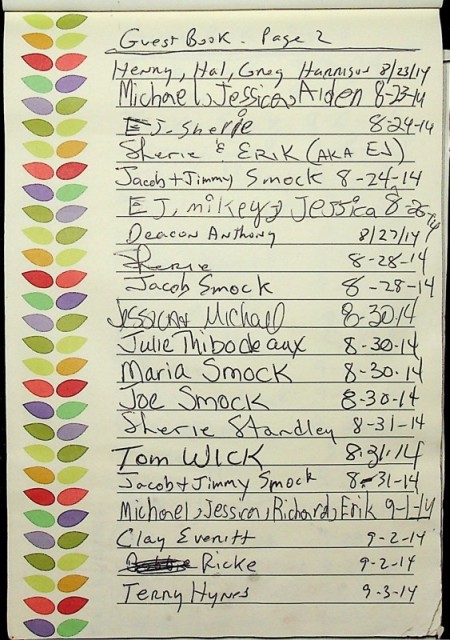 Guest Book - Page 2
Henny, Hal, Greg Harrison 8/23/14
Michael, Jessica, Aiden 8-23-14
EJ. Sherie 8-24-14
Sherie & ERIK (AKA EJ)
Jacob + Jimmy Smock 8-24-14
EJ, mikey, Jessica 8-26-14
Deacon Anthony 8/27/14
Sherie 8-28-14
Jacob Smock 8-28-14
Jessica Michael 8-30-14
Julie Thibodeaux 8-30-14
Maria Smock 8-30-14
Joe Smock 8-30-14
Sherie Standley 8-31-14
Tom WICK 8-31-14
Jacob + Jimmy Smock 8-31-14
Michael, Jessica, Richard, Erik 9-1-14
Clay Everitt 9-2-14
Ricke 9-2-14
Terry Hynes 9-3-14